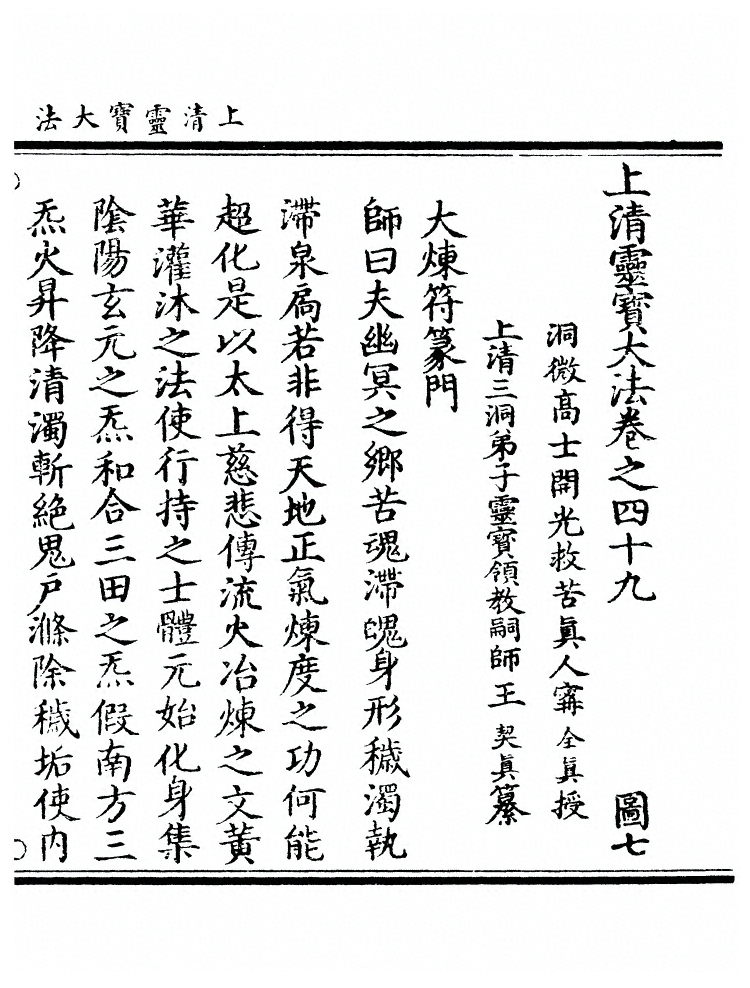 上清靈寶大法
上清靈寶大法卷之四十九 圖七
洞微高士開光救苦眞人寗全眞授
上清三洞弟子靈寶領教嗣師王契眞纂
大煉符篆門
師曰夫幽冥之鄉苦魂滯魄身形穢濁執
滯泉扃若非得天地正氣煉度之功何能
超化是以太上慈悲傳流火冶煉之文黃
華灌沐之法使行持之士體元始化身集
陰陽玄元之炁和合三田之炁假南方三
炁火昇降清濁斬絶鬼戶滌除穢垢使内